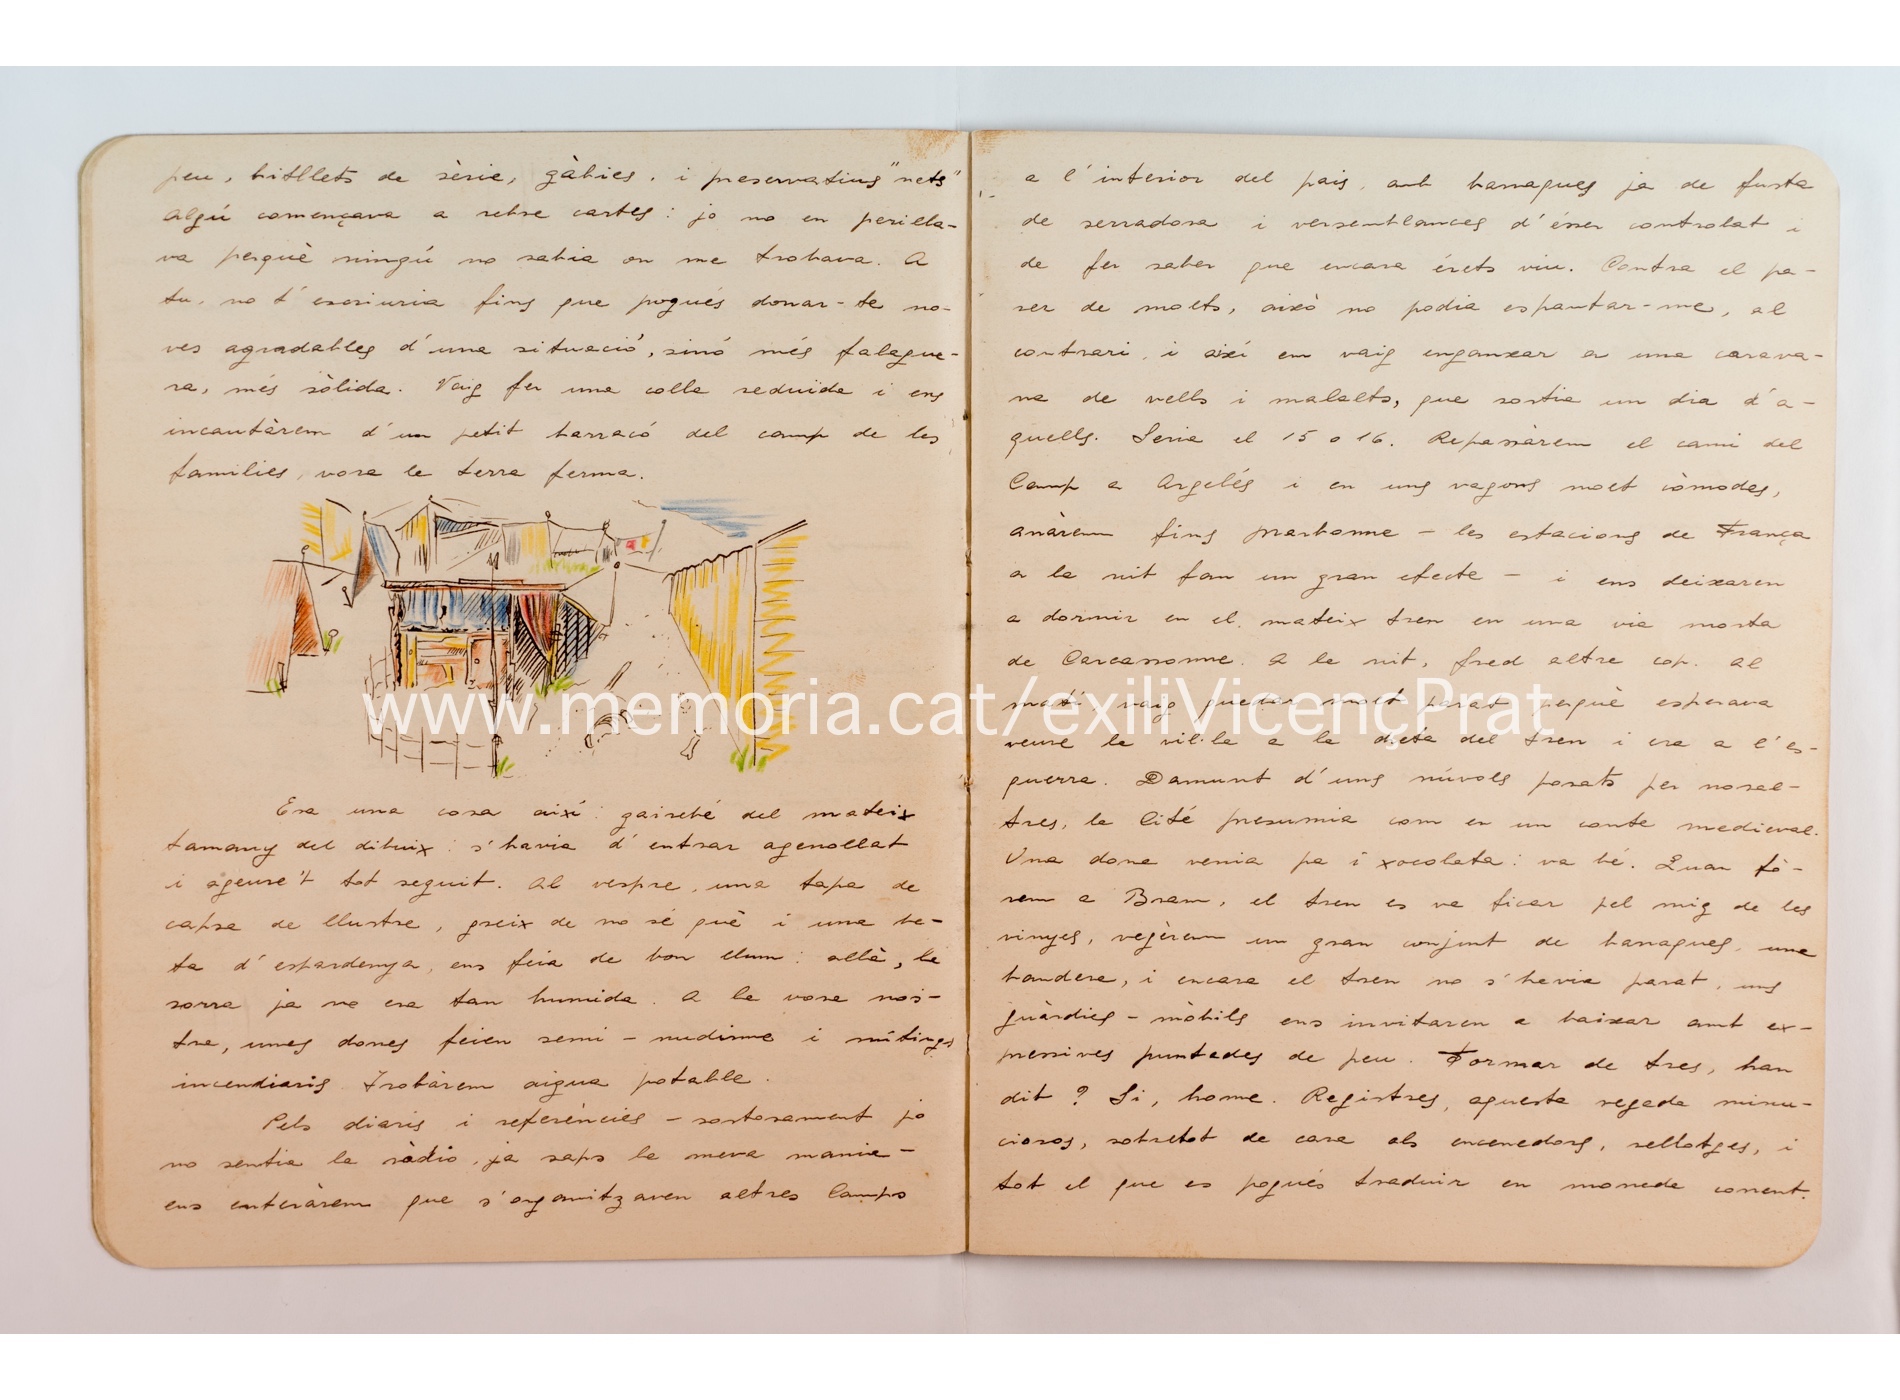 peu, bitllets de sèrie, gàbies, i preservatius "nets"
Algú començava a rebre cartes: jo no en perilla-
va perquè ningú no sabia on me trobava. A
tu, no t'escriuria fins que pogués donar-te no-
ves agradables d'una situació, sinó més falague-
ra, més sòlida. Vaig fer una colla reduïda i ens
incautàrem d'un petit barracó del camp de les
famílies, vora la terra ferma.
Era una cosa així: gairebé del mateix
tamany del dibuix: s'havia d'entrar agenollat
i ageure't tot seguit. Al vespre, una tapa de
capsa de llustre, greix de no sé què i una be-
ta d'espardenya, ens feia de bon llum: allà, la
sorra ja no era tan humida. A la vora nos-
tre, unes dones feien semi-nudisme i mítings
incendiaris. Trobàrem aigua potable.
Pels diaris i referències - sortosament jo
no sentia la ràdio, ja saps la meva mania -
ens enteràrem que s'organitzaven altres Camps
a l'interior del pais, amb barraques ja de fusta
de serradora i versemblances d'ésser controlat i
de fer saber que encara érets viu. Contra el pa-
rer de molts, això no podia espantar-me, al
contrari, i així em vaig enganxar a una carava-
na de vells i malalts, que sortia un dia d'a-
quells. Seria el 15 o 16. Repassàrem el camí del
Camp a Argelés i en uns vagons molt còmodes,
anàrem fins Narbonne - les estacions de França
a la nit fan un gran efecte - i ens deixaren
a dormir en el mateix tren en una via morta
de Carcassonne. A la nit, fred altre cop. Al
matí, vaig quedar molt parat perquè esperava
veure la vil·la a la dreta del tren i era a l'es-
querra. Damunt d'uns núvols posats per nosal-
tres, la Cité presumia com en un conte medieval.
Una dona venia pa i xocolata: va bé. Quan fó-
rem a Bram, el tren es va ficar pel mig de les
vinyes, vegèrem un gran conjunt de barraques, una
bandera, i encara el tren no s'havia parat, uns
guàrdies-mòbils ens invitaren a baixar amb ex-
pressives puntades de peu. Formar de tres, han
dit? Si, home. Registres, aquesta vegada minu-
ciosos, sobretot de cara als encenedors, rellotges, i
tot el que es pogués traduir en moneda corrent.
www.memoria.cat/exiliVicençPrat